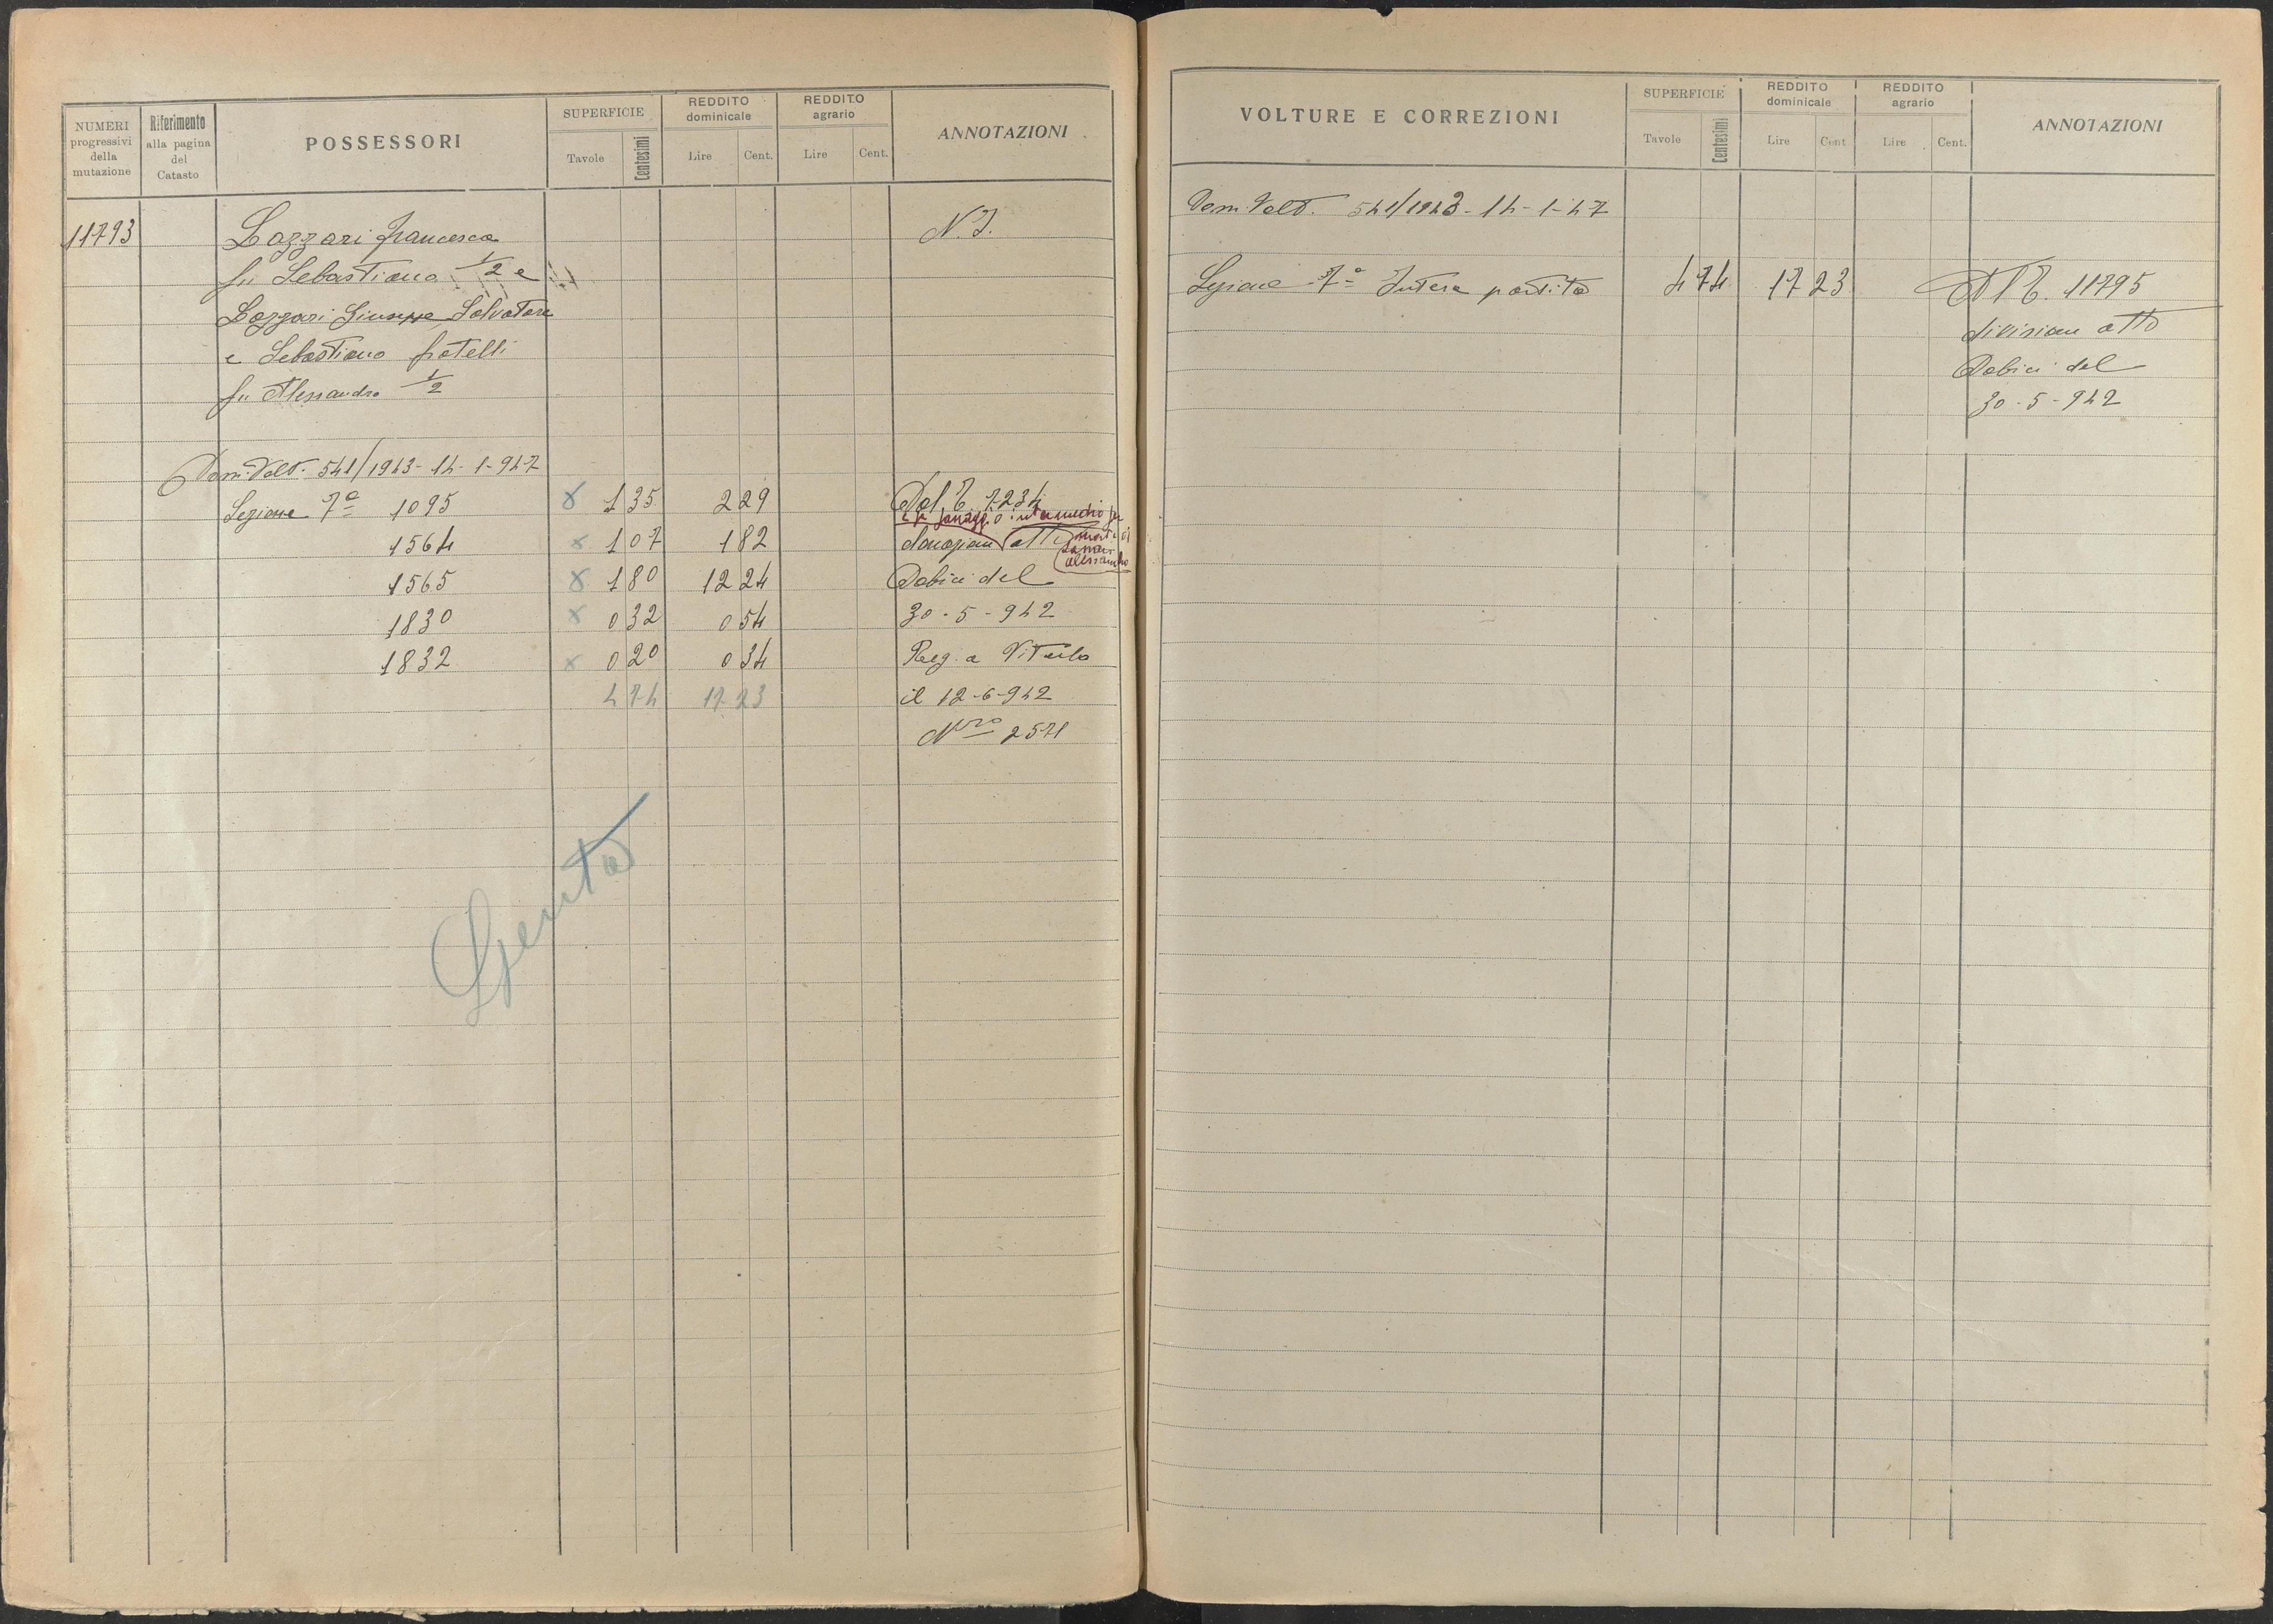 NUMERI progressivi della mutazione
Riferimento alla pagina del Catasto
POSSESSORI
SUPERFICIE
Tavole
Centesimi
REDDITO dominicale
Lire
Cent.
REDDITO agrario
Lire
Cent.
ANNOTAZIONI
11793
Lazzari Francesco
N. I.
fu Sebastiano 1/2 e
Lazzari Giuseppe, Salvatore
e Sebastiano fratelli
fu Alessandro 1/2
Dom. Volt. 541/1943 - 14 - 1 - 947
Sezione 7ª 1095 1 35 2 29 Dal 7234
e per passaggio intermedio per
morte di
Lazzari
Alessandro
1564 1 07 1 82 donazione atto
1565 1 80 12 24 Dobici del
1830 0 32 0 54 30 - 5 - 942
1832 0 20 0 34 Reg. a Viterbo
4 74 17 23 il 12 - 6 - 942
Nro 2571
VOLTURE E CORREZIONI
SUPERFICIE
Tavole
Centesimi
REDDITO dominicale
Lire
Cent
REDDITO agrario
Lire
Cent.
ANNOTAZIONI
Dom. Volt. 541/1943 - 14 - 1 - 47
Sezione 7ª Intera partita 4 74 17 23 Al 11795
divisione atto
Dobici del
30 - 5 - 942